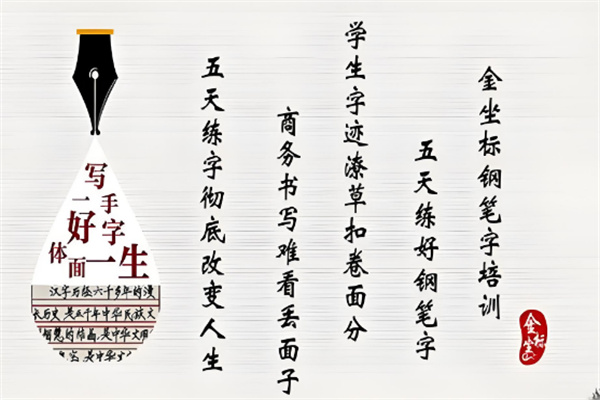 金坐标钢笔字培训
五天练好钢笔字
学生字迹潦草扣卷面分
商务书写难看丢面子
五天练字彻底改变人生
写一手好字
体面一生
汉字历经六千多年的漫
长历史是五千年中华民族文
智慧的结晶是中华文明
是中华文
金坐标